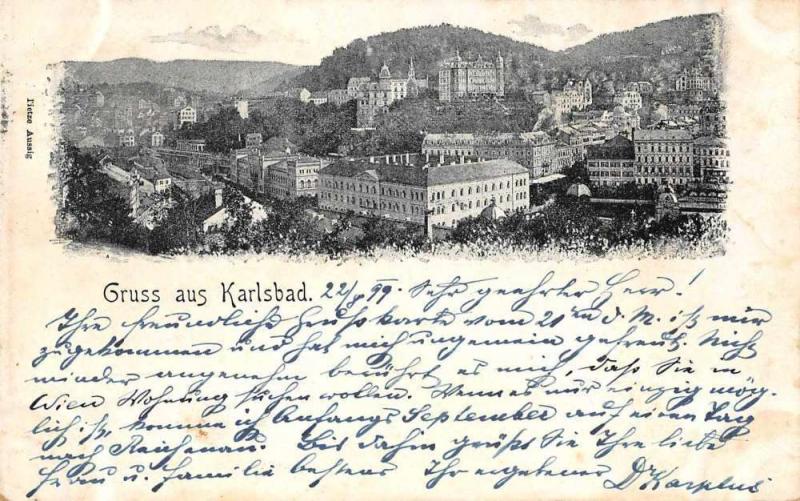 Pietze Aussig
Gruss aus Karlsbad. 22/8 99. Sehr geehrter Herr!
Ihre freundliche Grußkarte vom 21ten d. M. ist mir
zugekommen und hat mich ungemein gefreut. Nicht
minder angenehm berührt es mich, daß Sie in
Wien Wohnung suchen wollen. Wenn es nur einzig mög-
lich ist, komme ich Anfangs September auf einen Tag
nach Reichenau. Bis dahin grüßt Sie Ihre liebe
Frau u. Familie bestens Ihr ergebener Dr Karplus